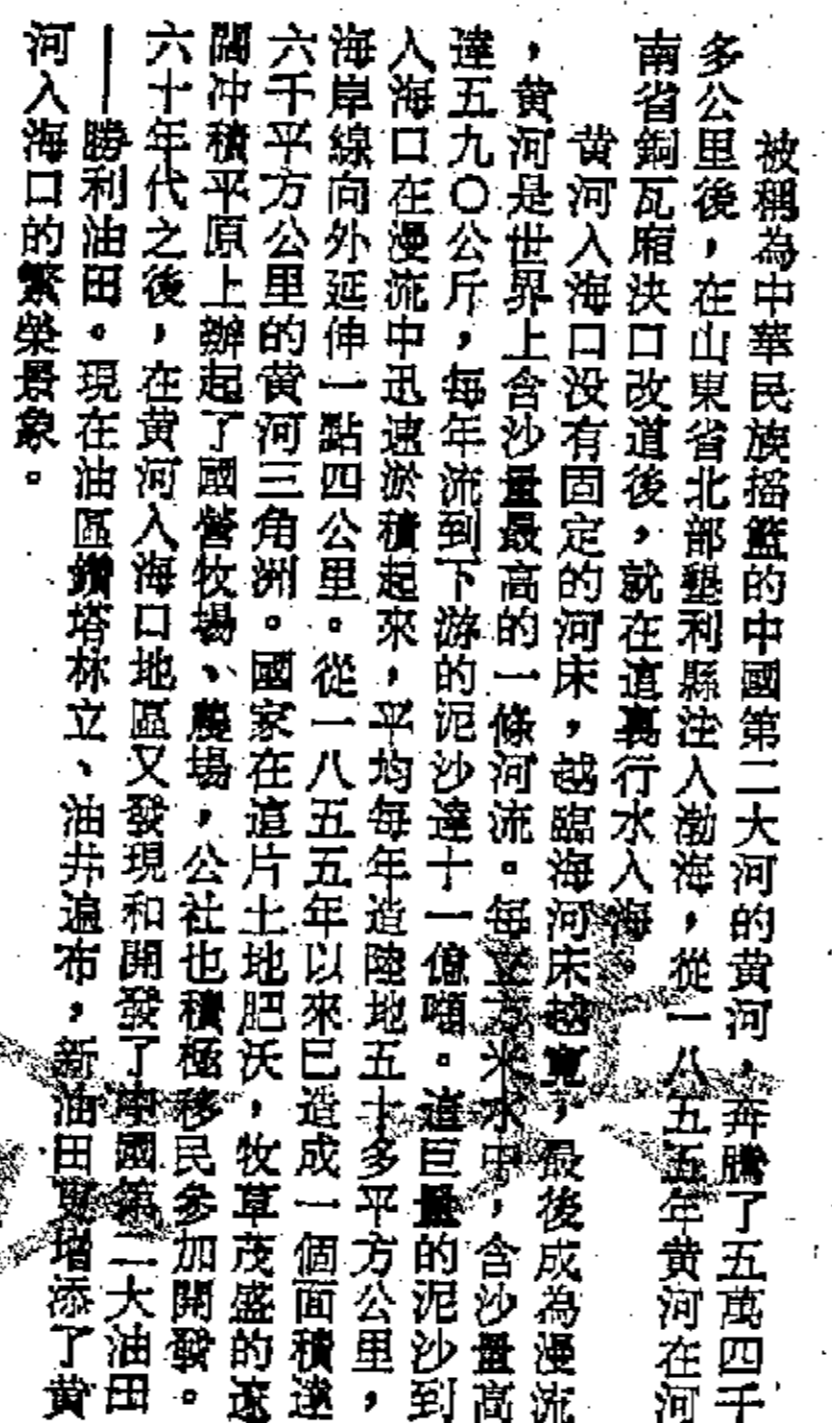 被稱為中華民族搖籃的中國第二大河的黄河，奔騰了五萬四千
多公里後，在山東省北部墾利縣注入渤海，從一八五五年黄河在河
南省銅瓦廂決口改道後，就在這裏行水入海。
黄河入海口没有固定的河床，越臨海河床越寬，最後成為漫流
，黄河是世界上含沙量最高的一條河流。每立方米水中，含沙量高
達五九〇公斤，每年流到下游的泥沙達十一億噸。這巨量的泥沙到
入海口在漫流中迅速淤積起來，平均每年造陸地五十多平方公里，
海岸線向外延伸一點四公里。從一八五五年以來已造成一個面積達
六千平方公里的黄河三角洲。國家在這片土地肥沃，牧草茂盛的遼
闊冲積平原上辦起了國營牧場、農場，公社也積極移民參加開發。
六十年代之後，在黄河入海口地區又發現和開發了中國第二大油田
——勝利油田。現在油區鑽塔林立、油井遍布，新油田更增添了黄
河入海口的繁榮景象。